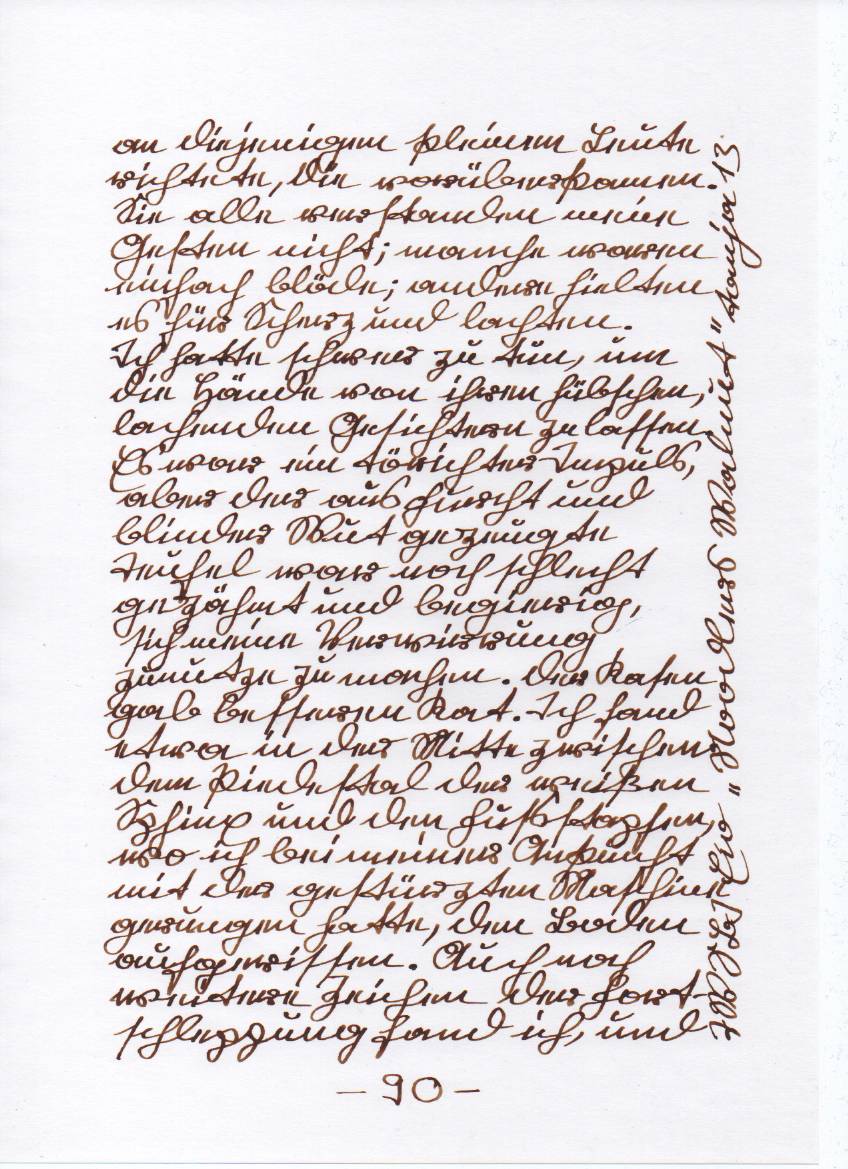 an diejenigen kleinen Leute
richtete, die vorüberkamen.
Sie alle verstanden meine
Gesten nicht; manche waren
einfach blöde; andere hielten
es für Scherz und lachten.
Ich hatte schwer zu tun, um
die Hände von ihren hübschen,
lachenden Gesichtern zu lassen.
Es war ein törichter Impuls,
aber der aus Furcht und
blinder Wut gezeugte
Teufel war noch schlecht
gezähmt und begierig,
sich meine Verwirrung
zunutze zu machen. Der Rasen
gab besseren Rat. Ich fand
etwa in der Mitte zwischen
dem Piedestal der weißen
Sphinx und den Fußstapfen,
wo ich bei meiner Ankunft
mit der gestürzten Maschine
gerungen hatte, den Boden
aufgerissen. Auch noch
weitere Zeichen der Fort-
schleppung fand ich, und
- 90 -
"Noodlers Walnut"